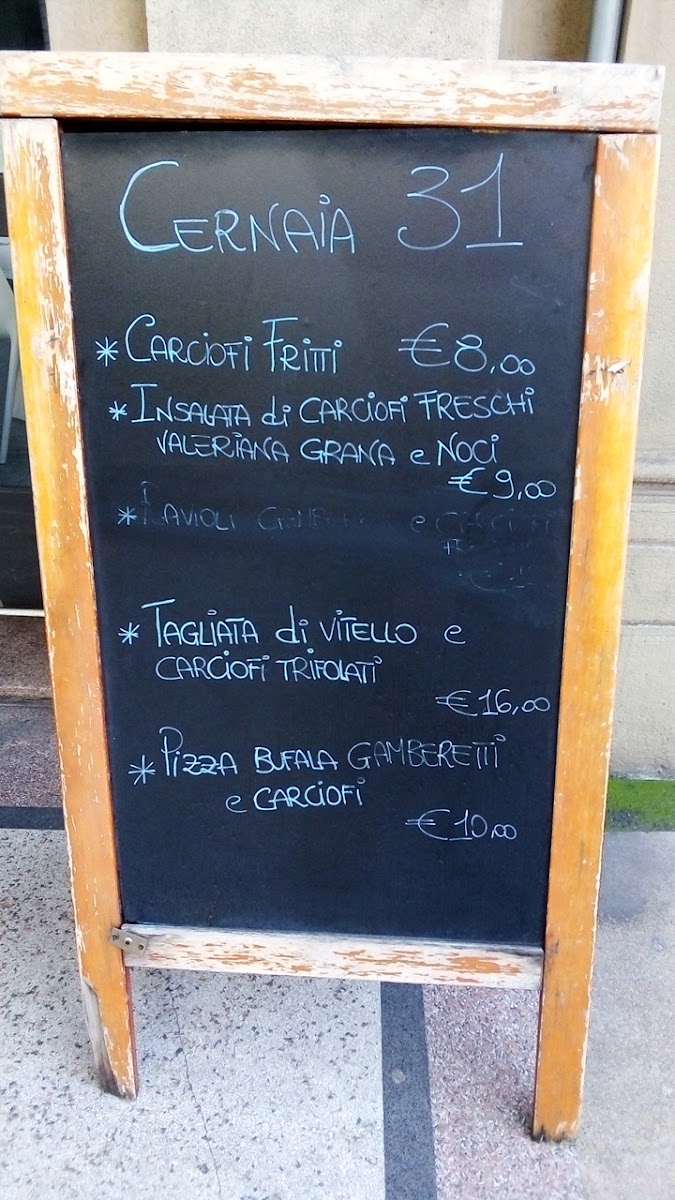 CERNAIA 31
* CARCIOFI FRITTI €8,00
* INSALATA di CARCIOFI FRESCHI
VALERIANA GRANA e NOCI
€9,00
* RAVIOLI e
* TAGLIATA di VITELLO e
CARCIOFI TRIFOLATI
€16,00
* PIZZA BUFALA GAMBERETTI
e CARCIOFI
€10,00